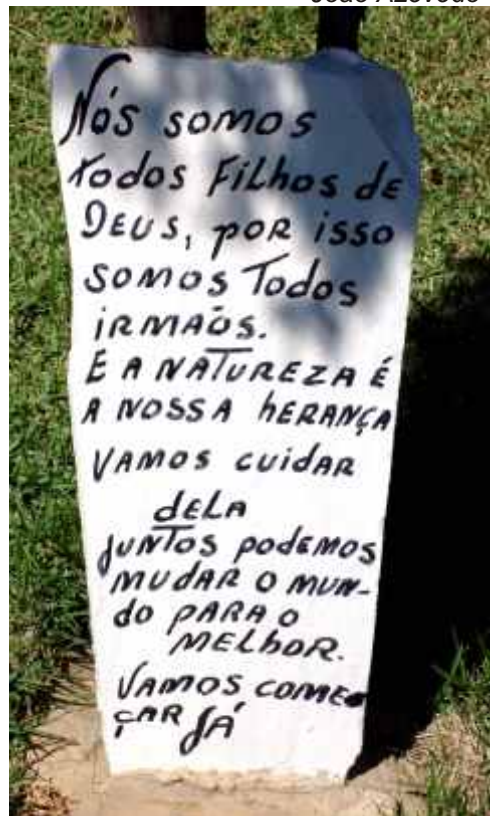 Nós somos
todos Filhos de
DEUS, POR isso
somos Todos
iRMAÓS.
E A NATUREZA É
A NOSSA hERANÇA
VAMOS cuidAR
dELA
JUNTOS PodEMOS
MUdAR O MUN-
do PARA O
MELhOR.
VAMOS COME-
ÇAR JÁ